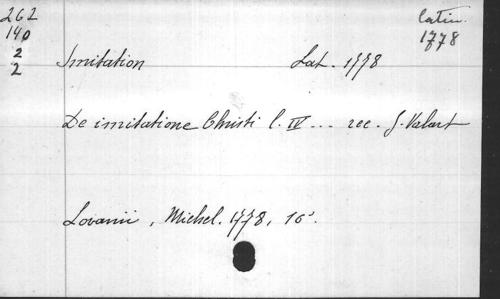 262
140
2
2
latin.
1778
Imitation Lat. 1778
De imitatione Christi l. IV ... rec. J. Valart
Lovanii, Michel. 1778, 16°.